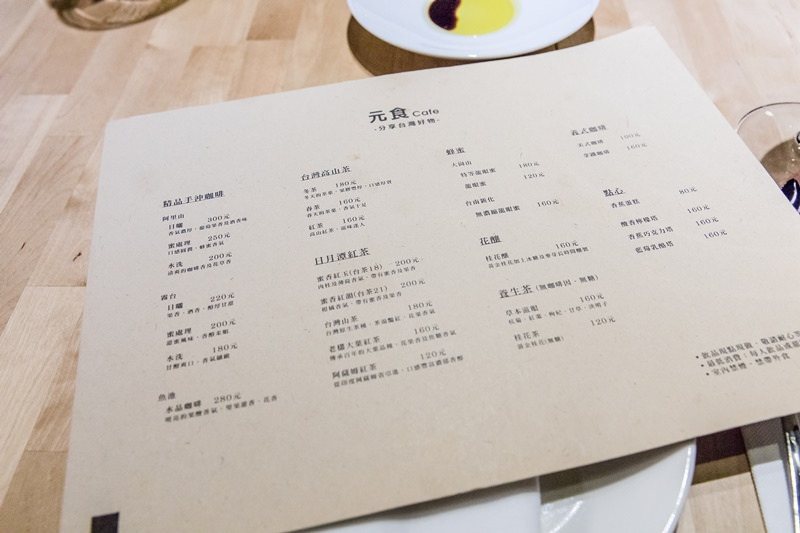 元食 Cafe
-分享台灣好物-
精品手沖咖啡
阿里山
日曬 300元
蜜處理 250元
水洗 200元
霧台
日曬 220元
果香、酒香、醇厚甘甜
蜜處理 200元
水洗 180元
魚池
水晶咖啡 280元
台灣高山茶
冬茶 180元
春茶 160元
春天的茶葉,香氣十足
紅茶 160元
日月潭紅茶
蜜香紅玉(台茶18) 200元
蜜香紅韻(台茶21) 200元
台灣山茶 180元
老欉大葉紅茶 160元
阿薩姆紅茶 120元
蜂蜜
大崗山
特等龍眼蜜 180元
龍眼蜜 120元
台南新化
無濃縮龍眼蜜 160元
花釀
桂花釀 160元
養生茶(無咖啡因、無糖)
草本滋眼 160元
杭菊、紅棗、枸杞、甘草、決明子
桂花茶 120元
黃金桂花(無糖)
義式咖啡
美式咖啡 160元
拿鐵咖啡 160元
點心
香蕉蛋糕 80元
酸香檸檬塔 160元
香蕉巧克力塔 160元
藍莓乳酪塔 160元
•飲品現點現做,敬請耐心等
•最低消費:每人飲品或
•室內禁煙、禁帶外食